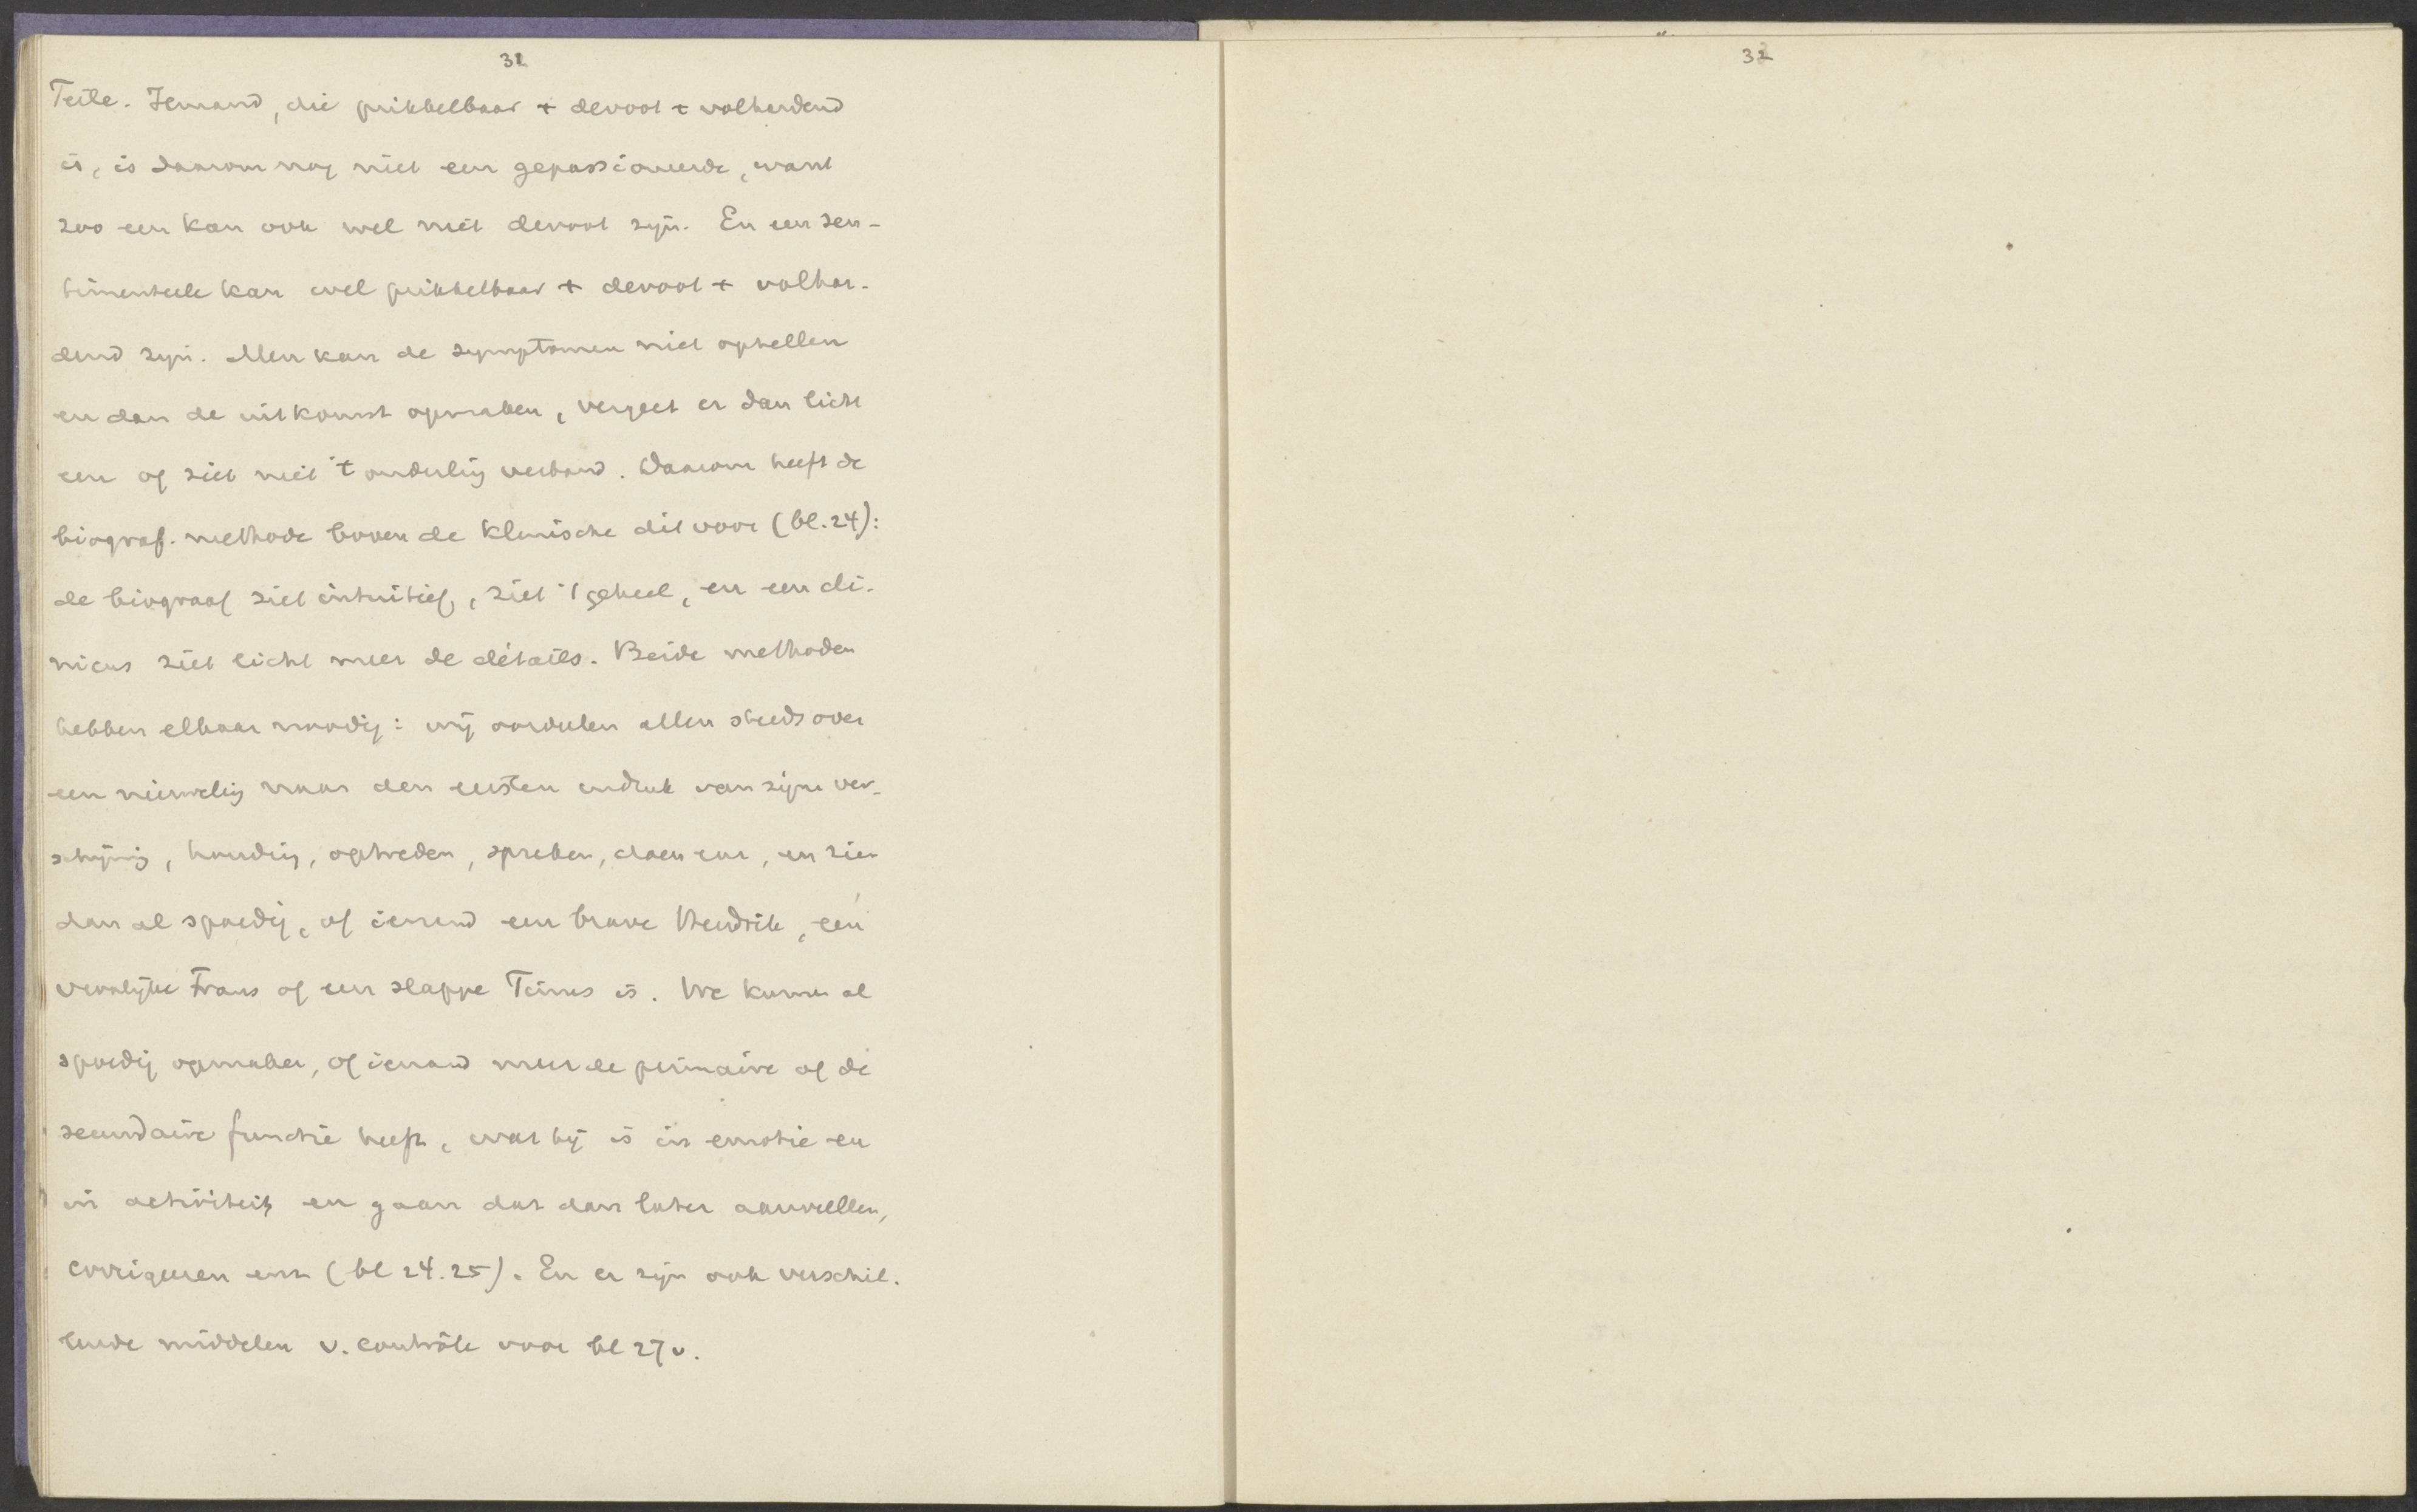 31
Teile. Iemand, die prikkelbaar + devoot + volhardend
is, is daarom nog niet een gepassioneerde, want
zoo een kan ook wel niet devoot zijn. En een sen-
timenteele kan wel prikkelbaar + devoot + volhar-
dend zijn. Men kan de symptomen niet optellen
en dan de uitkomst opmaken, vergeet er dan licht
een of ziet niet 't onderling verband. Daarom heeft de
biograf. methode boven de klinische dit voor (bl. 24):
de biograaf ziet intuitief, ziet 't geheel, en een cli-
nicus ziet licht meer de détails. Beide methoden
hebben elkaar noodig: wij oordeelen allen steeds over
een nieuweling naar den eersten indruk van zijne ver-
schijning, houding, optreden, spreken, doen enz, en zien
dan al spoedig, of iemand een brave Hendrik, een
vroolijke Frans of een slappe Tinus is. We kunnen al
spoedig opmaken, of iemand meer de primaire of de
secundaire functie heeft, wat hij is in emotie en
in activiteit, en gaan dat dan later aanvullen,
corrigeeren enz (bl 24.25). En er zijn ook verschil-
lende middelen v. contrôle voor bl 27v.
32